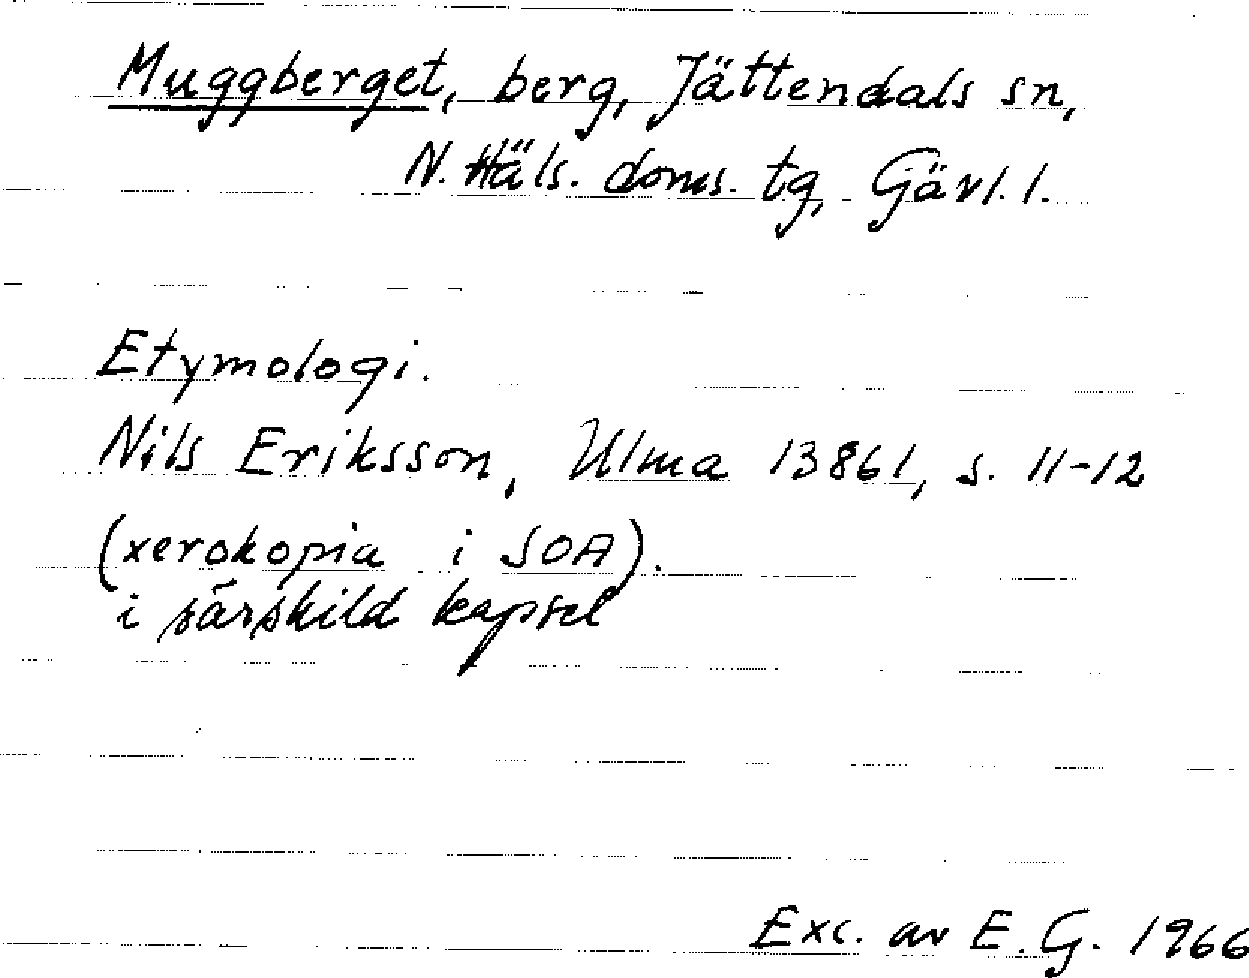 Muggberget, berg, Jättendals sn,
N. Häls. doms. tg, Gävl. l.
Etymologi.
Nils Eriksson, Ulma 13861, s. 11-12
(xerokopia i SOA).
i särskild kapsel
Exc. av E.G. 1966